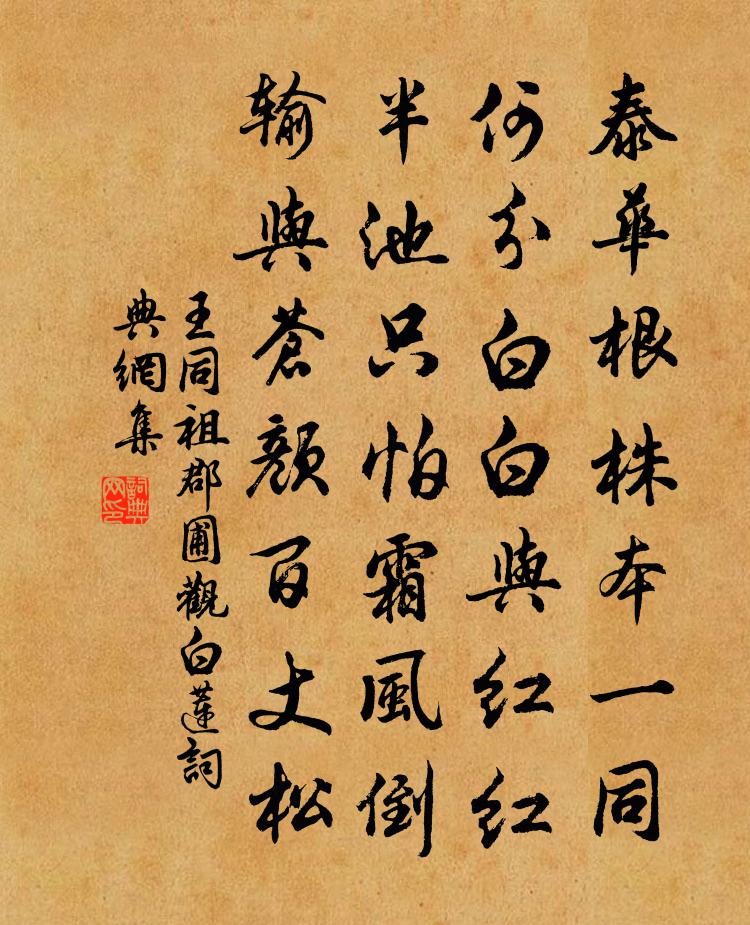 泰華根株本一同
何分白白與紅紅
半池只怕霜風倒
輸與蒼顔百丈松
王同祖郡圃觀白蓮詞
典網集
詞典
网印